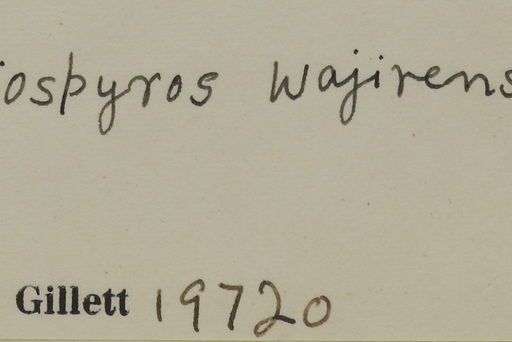 iospyros wajirens
Gillett 19720